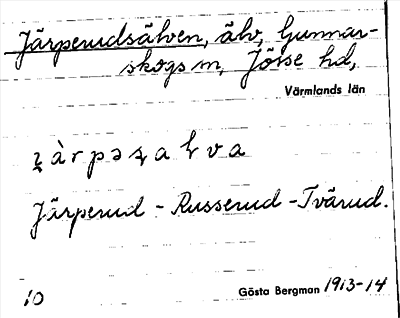 Järperudsälven, älv, Gunnar-
skogs sn, Jösse hd,
Värmlands län
Järperud - Russerud - Tvärud.
10
Gösta Bergman 1913-14